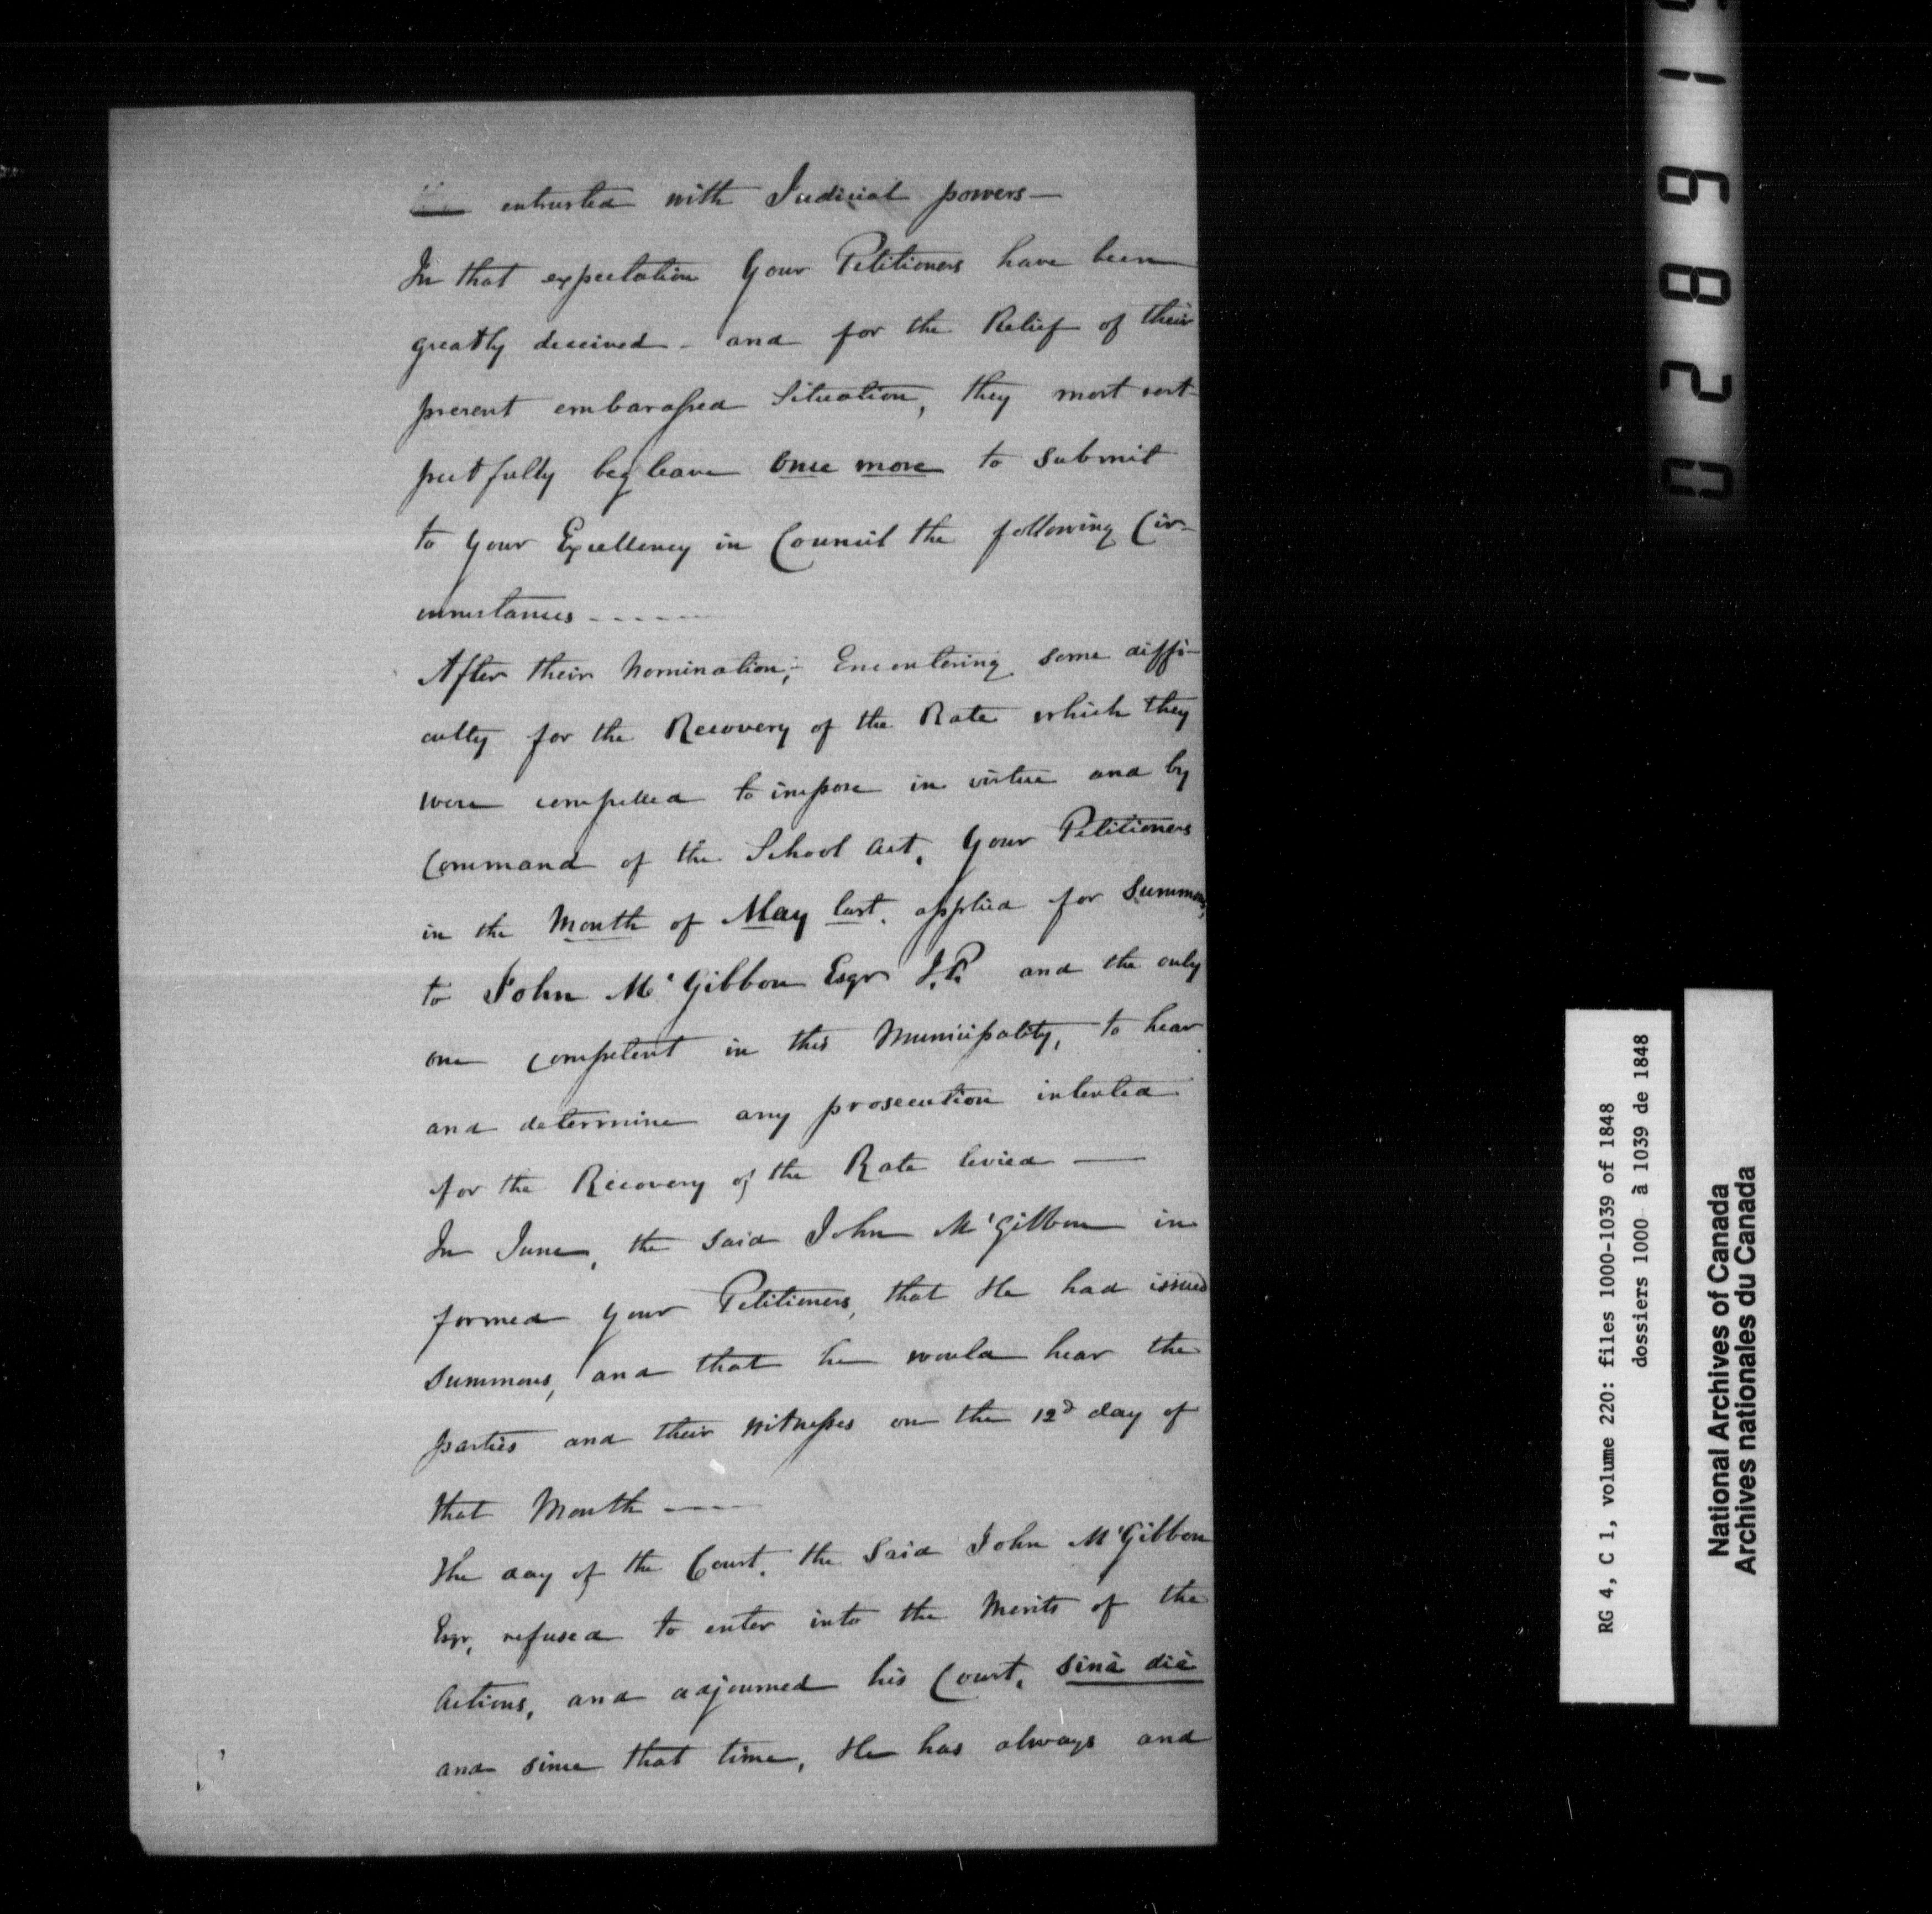 entrusted with Judicial powers—
In that expectation Your Petitioners have been
greatly deceived - and for the Relief of their
present embarassed Situation, they most
pectfully beg leave once more to submit
to Your Excellency in Council the following Cir-
cumstances - - - - -
After their Nomination; Encontering some diffi-
culty for the Recovery of the Rate which they
were compelled to impose in virtue and by
Command of the School Act, Your Petitioners
in the Month of May last, applied for Summons,
to John Mc Gibbon Esqr J.P. and the only
one competent in this Municipality, to hear
and determine any prosecution intented
for the Recovery of the Rate levied —
In June, the said John M'Gibbon in
formed Your Petitioners, that He had issued
Summons, and that he would hear the
parties and their witnesses on the 12d day of
that Month —
The day of the Court, the Said John M'Gibbon
Esqr, refused to enter into the Merits of the
Actions, and adjourned his Court, sinè diè
and since that time, He has always and
028619
RG 4, C 1, volume 220: files 1000-1039 of 1848
dossiers 1000 à 1039 de 1848
National Archives of Canada
Archives nationales du Canada